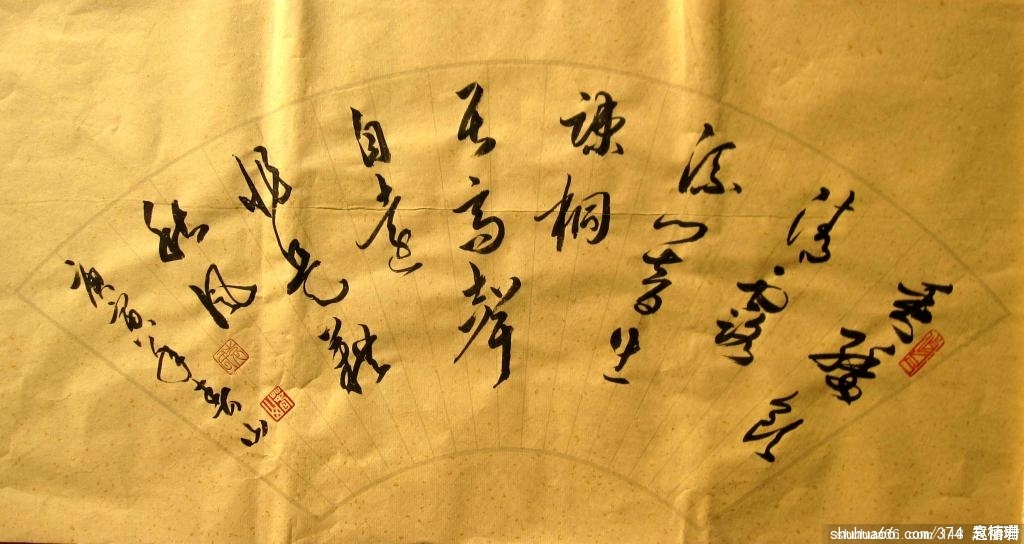 垂緌飲
清露
流響出
疎桐
居高聲
自遠
非是藉
秋風
庚寅年春山
shuhua66.com/374